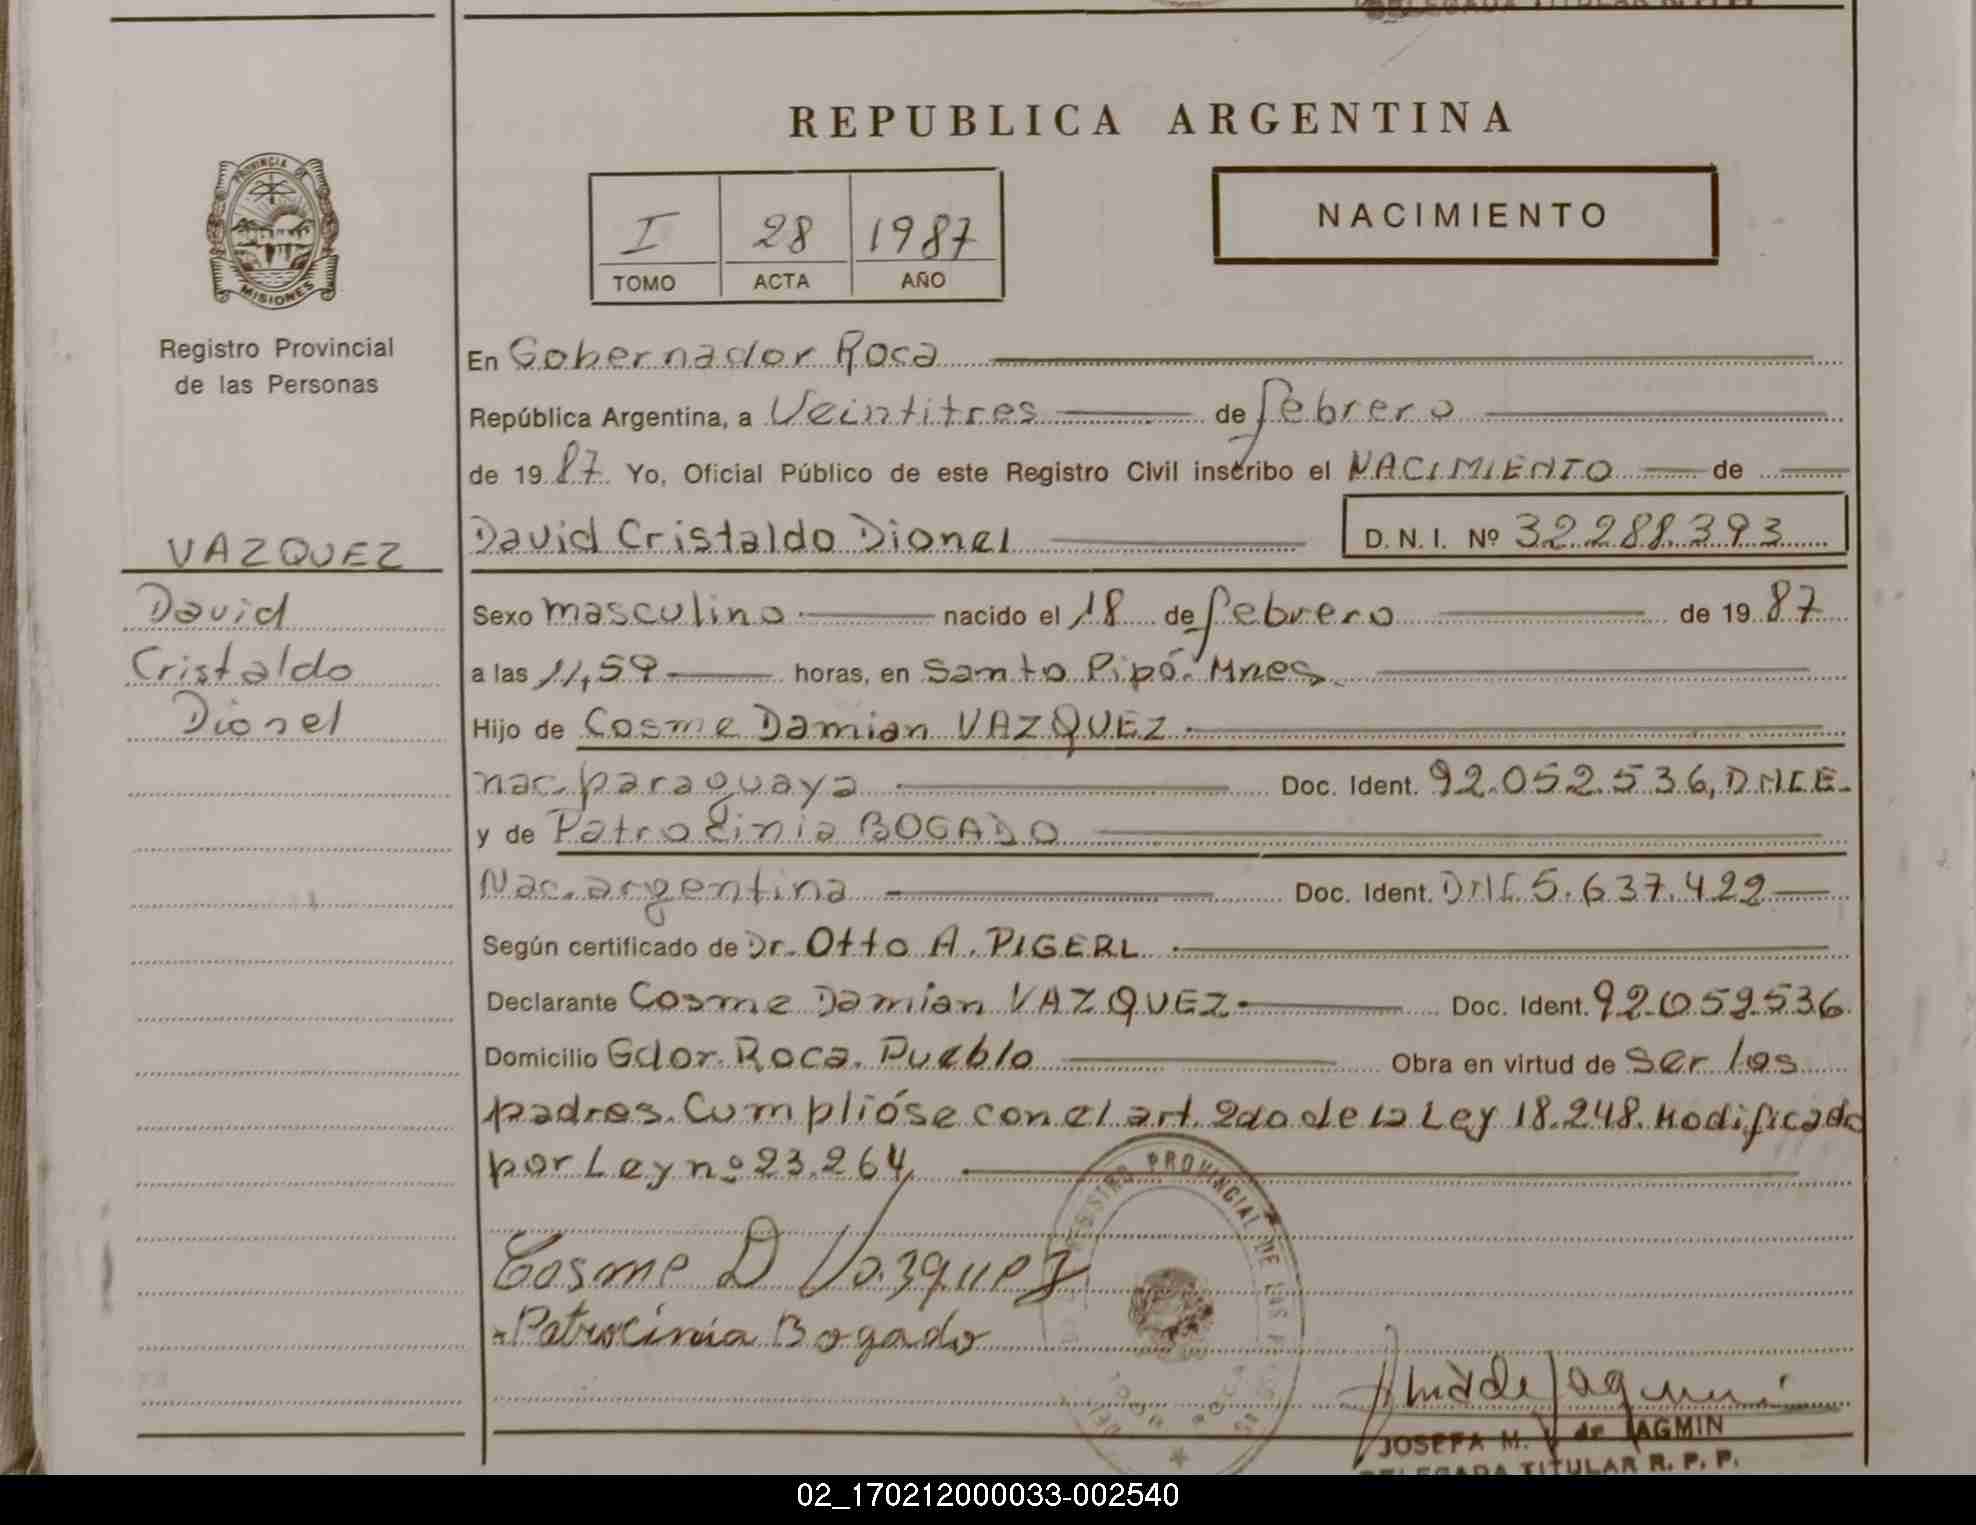 REPUBLICA ARGENTINA
PROVINCIA DE
MISIONES
Registro Provincial
de las Personas
I 28 1987
TOMO ACTA AÑO
NACIMIENTO
En Gobernador Roca
República Argentina, a Veintitres de febrero
de 1987 Yo, Oficial Público de este Registro Civil inscribo el NACIMIENTO de
David Cristaldo Dionel D. N. I. Nº 32.288.393
VAZQUEZ
David
Cristaldo
Dionel
Sexo masculino nacido el 18 de febrero de 1987
a las 11,59 horas, en Santo Pipó. Mnes.
Hijo de Cosme Damian VAZQUEZ
nac. paraguaya Doc. Ident. 92.052.536, DNIE
y de Patrocinia BOGADO
Nac. argentina Doc. Ident. DNI 5.637.422
Según certificado de Dr. Otto A. PIGERL
Declarante Cosme Damian VAZQUEZ Doc. Ident. 92.052.536
Domicilio Gdor. Roca. Pueblo Obra en virtud de ser los
padres. Cumplióse con el art. 2do de la Ley 18.248. Modificado
por Ley nº 23.264,
REGISTRO PROVINCIAL DE LAS
Cosme D Vazquez
Patrocinia Bogado
JOSEFA M. V de JAGMIN
DELEGADA TITULAR R. P. P.
02_170212000033-002540